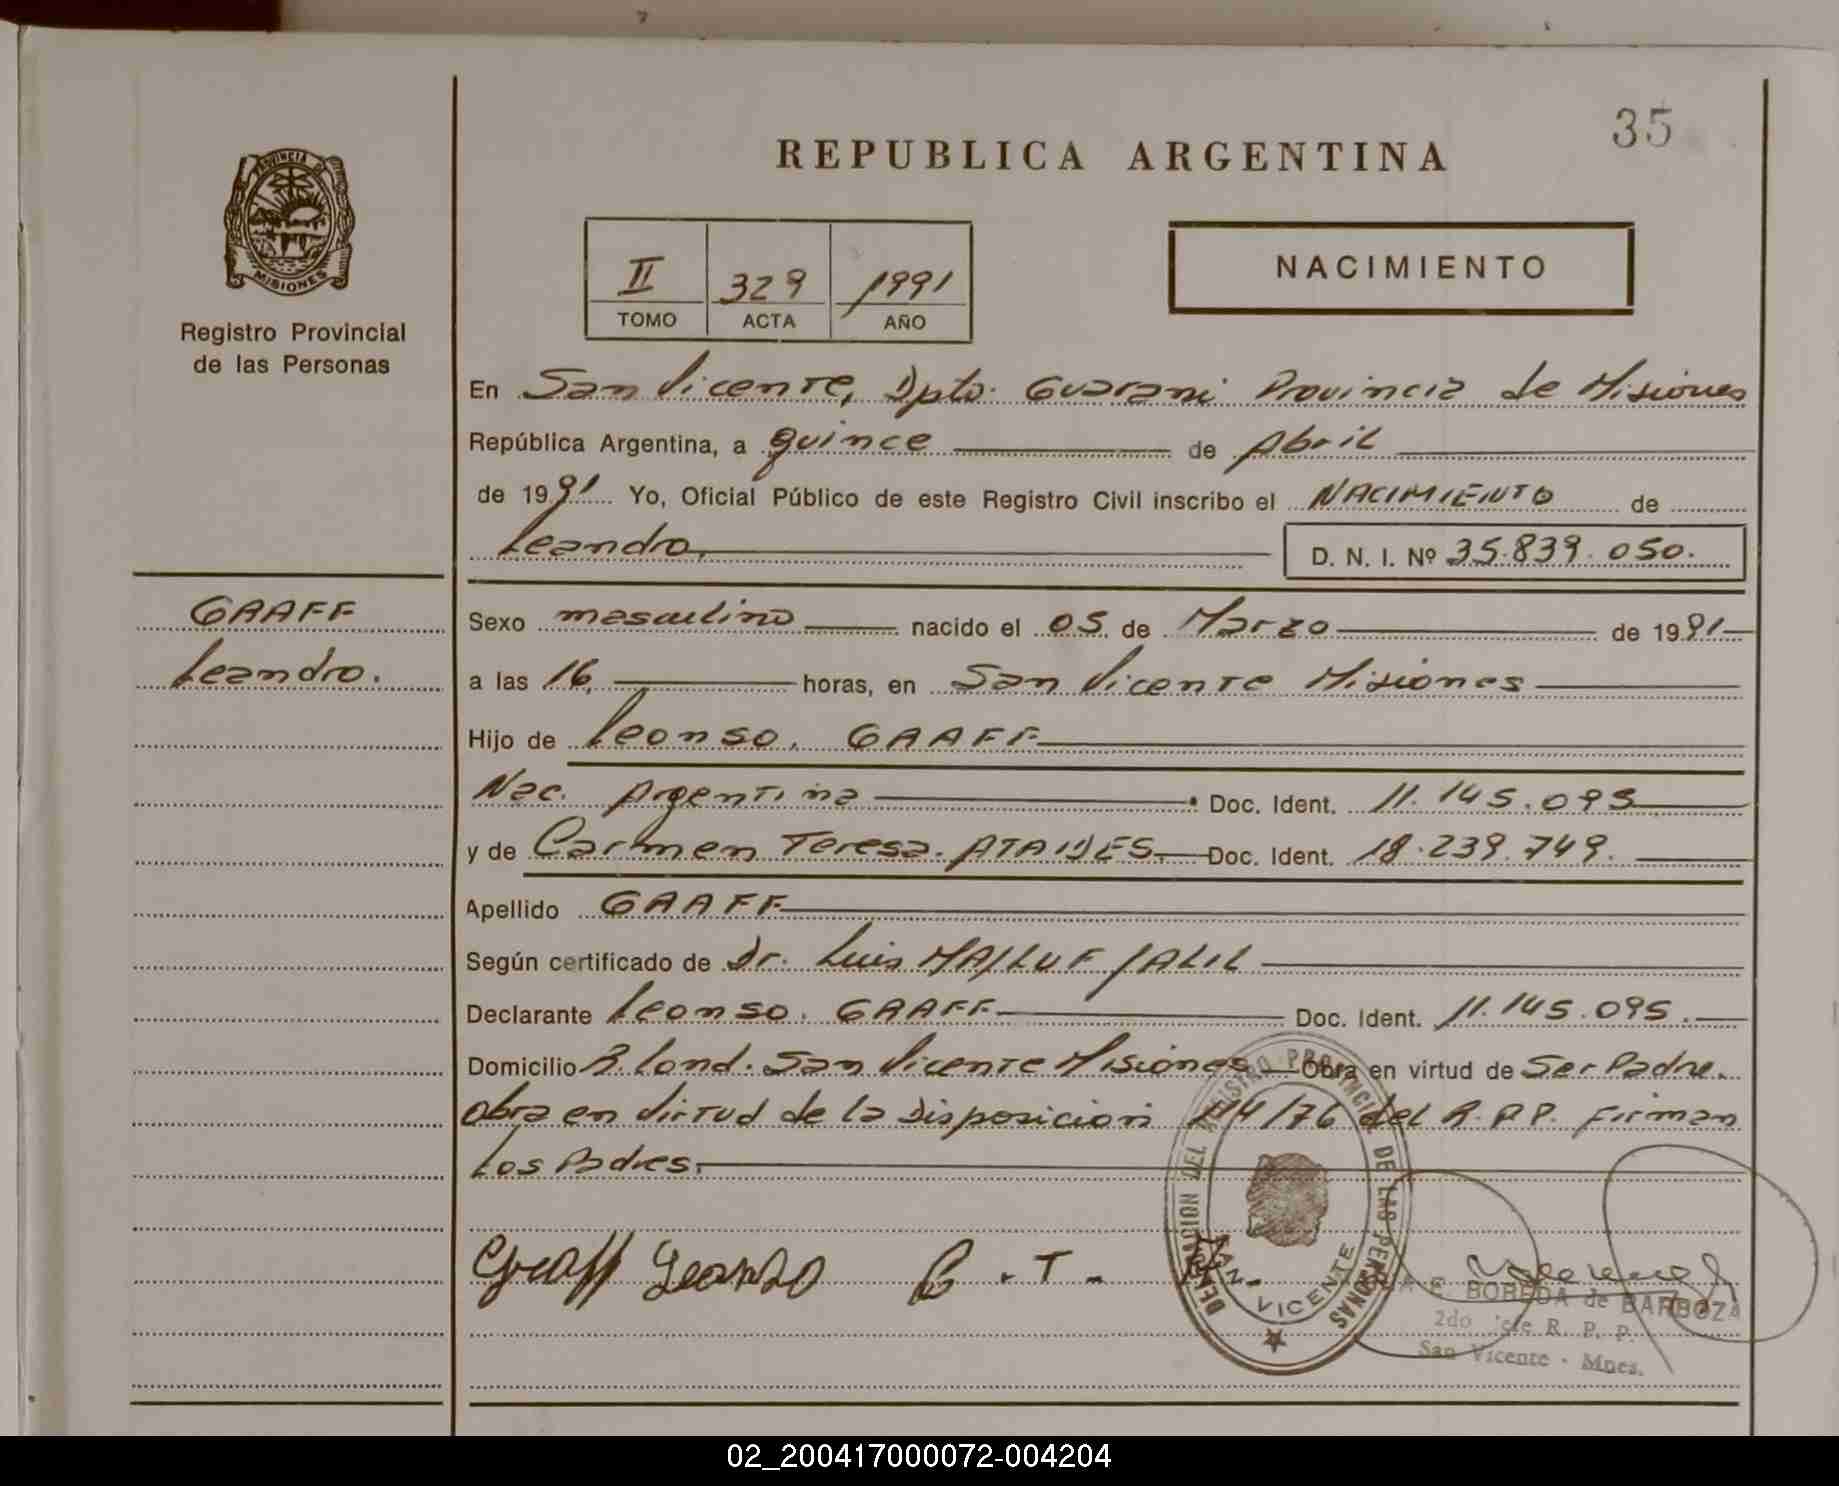 35
REPUBLICA ARGENTINA
PROVINCIA DE
MISIONES
Registro Provincial
de las Personas
II 329 1991
TOMO ACTA AÑO
NACIMIENTO
En San Vicente, Dpto. Guarani Provincia de Misiones
República Argentina, a quince de Abril
de 1991 Yo, Oficial Público de este Registro Civil inscribo el NACIMIENTO de
Leandro. D. N. I. Nº 35.839.050.
GRAFF
Leandro.
Sexo masculino nacido el 05 de Marzo de 1991
a las 16 horas, en San Vicente Misiones
Hijo de Leonso. GRAFF
Nac. Argentina Doc. Ident. 11.145.095
y de Carmen Teresa. ATAIDES Doc. Ident. 18.239.749.
Apellido GRAFF
Según certificado de Dr. Luis MAJLUF JALIL
Declarante Leonso. GRAFF Doc. Ident. 11.145.095.
Domicilio B. Lond. San Vicente Misiones Obra en virtud de Ser Padre.
Obra en virtud de la Disposicion 114/76 del R.P.P. Firman
Los Padres.
Graff Leonso C. T. A.
DELEGACION DEL REGISTRO PROVINCIAL DE LAS PERSONAS
SAN VICENTE
E. BOBEDA de BARBOZA
2do Jefe R. P. P.
San Vicente - Mnes.
02_200417000072-004204